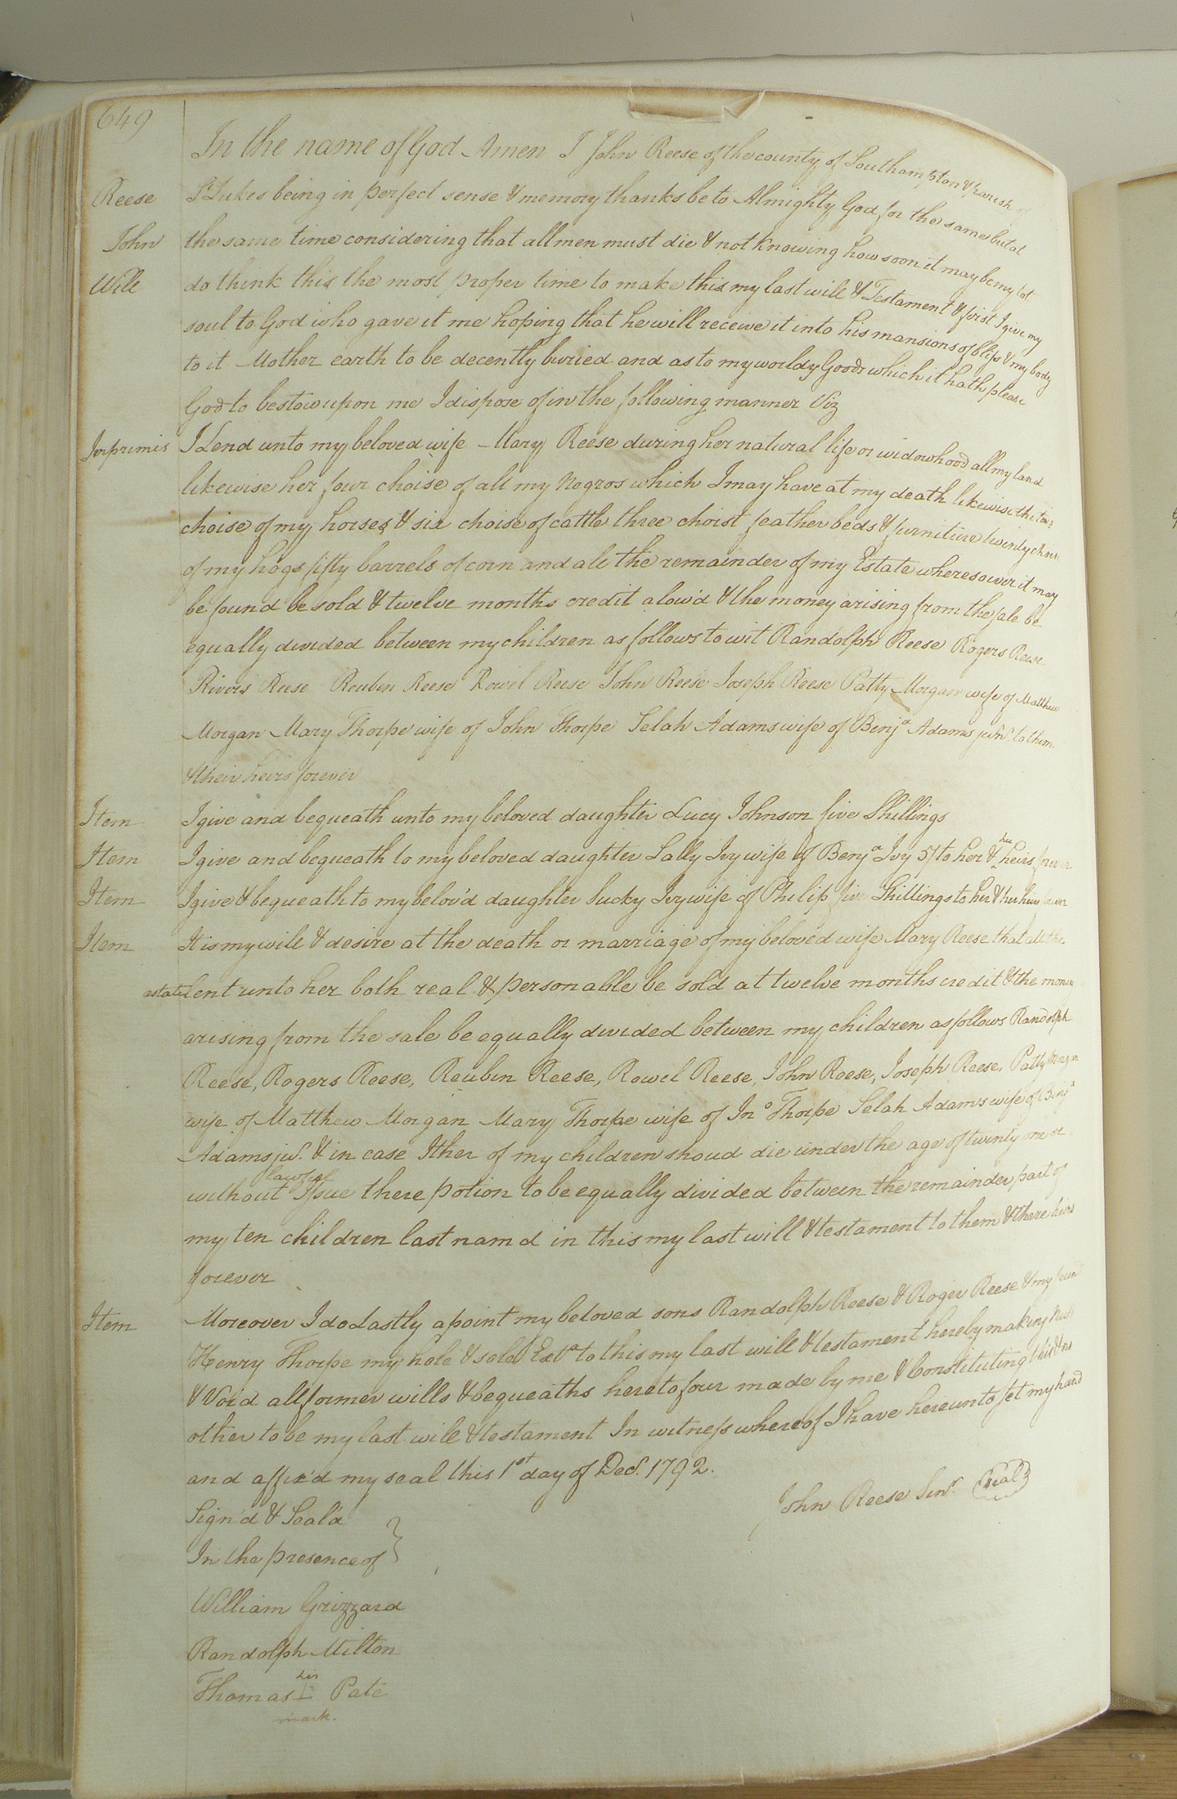 649
In the name of God Amen I John Reese of the county of Southampton & parish of
Reese St Lukes being in perfect sense & memory thanks be to Almighty God for the same but at
John the same time considering that all men must die & not knowing how soon it may be my lot
Will do think this the most proper time to make this my last will & Testament & first I give my
soul to God who gave it me hoping that he will receive it into his mansions of bliss & my body
to it Mother earth to be decently buried and as to my worldy Goods which it hath please
God to bestow upon me I dispose of in the following manner Viz
Imprimis I Lend unto my beloved wife Mary Reese during her natural life or widowhood all my land
likewise her four choise of all my Negros which I may have at my death likewise the two
choise of my horses & six choise of cattle three choist feather beds & furniture twenty choise
of my hogs fifty barrels of corn and all the remainder of my Estate wheresoever it may
be found be sold & twelve months credit alow'd & the money arising from the sale be
equally divided between my children as follows to wit Randolph Reese Rogers Reese
Rivers Reese Reuben Reese Rowel Reese John Reese Joseph Reese Patty Morgan wife of Matthew
Morgan Mary Thorpe wife of John Thorpe Selah Adams wife of Benja Adams junr to them
& their heirs forever
Item I give and bequeath unto my beloved daughter Lucy Johnson five Shillings
Item I give and bequeath to my beloved daughter Sally Ivy wife of Benja Ivy 5/ to her & her heirs forever
Item I give & bequeath to my belov'd daughter Sucky Ivy wife of Philip five Shillings to her & her heirs forever
Item It is my will & desire at the death or marriage of my belov'd wife Mary Reese that all the
estate lent unto her both real & personable be sold at twelve months credit & the money
arising from the sale be equally divided between my children as follows Randolph
Reese, Rogers Reese, Reubin Reese, Rowel Reese, John Reese, Joseph Reese, Patty Morgan
wife of Matthew Morgan Mary Thorpe wife of Jno Thorpe Selah Adams wife of Benja
Adams jur. & in case Ither of my children shoud die under the age of twenty one or
without lawful Issue there potion to be equally divided between the remainder part of
my ten children last namd in this my last will & testament to them & there heirs
forever
Item Moreover I do Lastly apoint my beloved sons Randolph Reese & Roger Reese & my friend
Henry Thorpe my hole & sole Exrs to this my last will & testament hereby making null
& void all former wills & bequeaths heretofour made by me & Constituting this & no
other to be my last will & testament In witness whereof I have hereunto set my hand
and affix'd my seal this 1st day of Decr. 1792.
John Reese Senr. Seal
Sign'd & Seal'd
In the presence of
William Grizzard
Randolph Milton
Thomas his I Pate
mark.